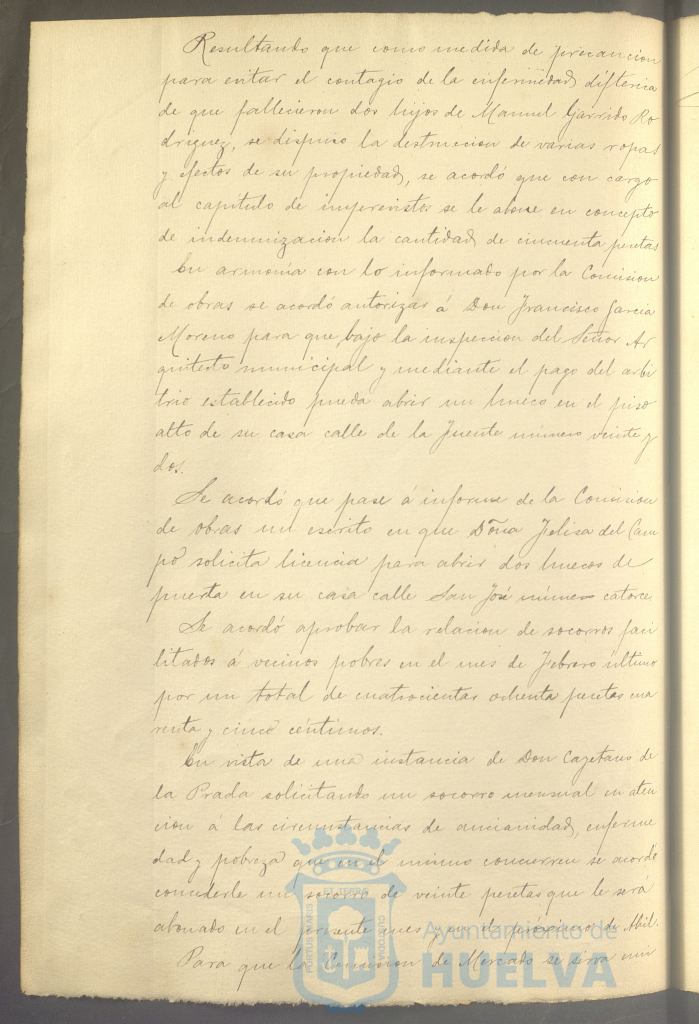 Resultando que como medida de precaucion
para evitar el contagio de la enfermedad difterica
de que fallecieron dos hijos de Manuel Garrido Ro
driguez, se dispuso la destruccion de varias ropas
y efectos de su propiedad, se acordó que con cargo
al capitulo de imprevistos se le abone en concepto
de indemnizacion la cantidad de cincuenta pesetas
En armonia con lo informado por la Comision
de obras se acordó autorizar á Don Francisco Garcia
Moreno para que, bajo la inspeccion del Señor Ar
quitecto municipal y mediante el pago del arbi
trio establecido pueda abrir un hueco en el piso
alto de su casa calle de la Fuente número veinte y
dos.
Se acordó que pase á informe de la Comision
de obras un escrito en que Doña Felisa del Cam
po solicita licencia para abrir dos huecos de
puerta en su casa calle San José número catorce
Se acordó aprobar la relacion de socorros faci
litados á vecinos pobres en el mes de Febrero último
por un total de cuatrocientas ochenta pesetas cua
renta y cinco céntimos.
En vista de una instancia de Don Cayetano de
la Prada solicitando un socorro mensual en aten
cion á las circunstancias de ancianidad, enferme
dad y pobreza que en el mismo concurren se acordó
concederle un socorro de veinte pesetas que le será
abonado en el presente mes y en el próximo de Abril.
Para que la Comision de Mercado se sirva emi
PORTUS MARIS ET TERRE CUSTODIA
Ayuntamiento de
HUELVA